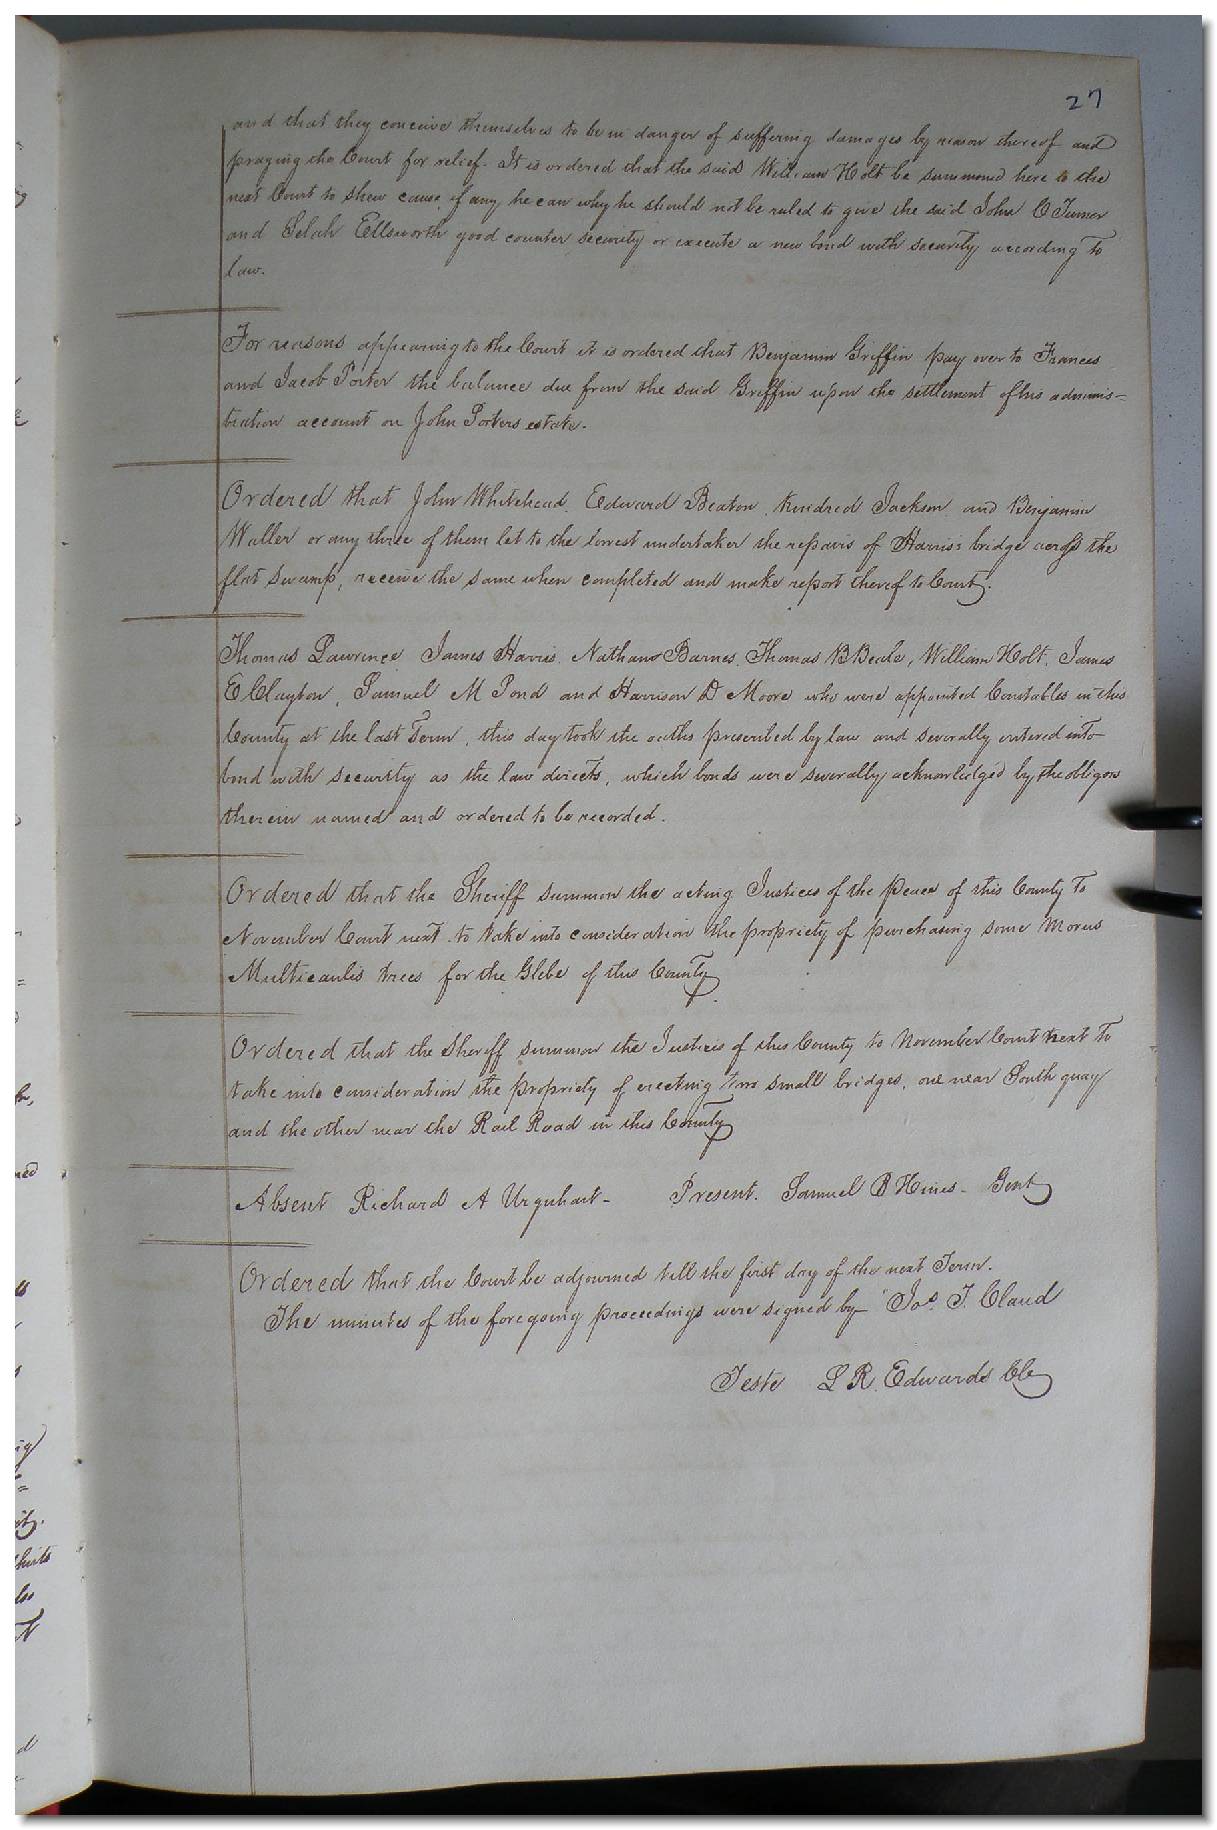 27
and that they conceive themselves to be in danger of suffering damages by reason thereof and
praying the Court for relief. It is ordered that the said William Holt be summoned here to the
next Court to shew cause, if any, he can why he should not be ruled to give the said John C Turner
and Selah Ellsworth good counter security or execute a new bond with security according to
law.
For reasons appearing to the Court it is ordered that Benjamin Griffin pay over to Frances
and Jacob Porter the balance due from the said Griffin upon the settlement of his adminis-
tration account on John Porters estate.
Ordered that John Whitehead, Edward Beaton, Kindred Jackson and Benjamin
Waller or any three of them let to the lowest undertaker the repairs of Harris's bridge across the
flat swamp, receive the same when completed and make report thereof to Court.
Thomas Lawrence, James Harris, Nathan Barnes, Thomas B Beale, William Holt, James
E Clayton, Samuel M Pond and Harrison D Moore who were appointed Constables in this
County at the last Term, this day took the oaths prescribed by law and severally entered into
bond with security as the law directs, which bonds were severally acknowledged by the obligors
therein named and ordered to be recorded.
Ordered that the Sheriff summon the acting Justices of the peace of this County to
November Court next to take into consideration the propriety of purchasing some Morus
Multicaulis trees for the Glebe of this County.
Ordered that the Sheriff summon the Justices of this County to November Court next to
take into consideration the propriety of erecting two small bridges, one near South quay
and the other near the Rail Road in this County
Absent Richard A Urquhart- Present. Samuel B Hines- Gent
Ordered that the Court be adjourned till the first day of the next Term.
The minutes of the foregoing proceedings were signed by Jos. T. Claud
Teste L R. Edwards Clk